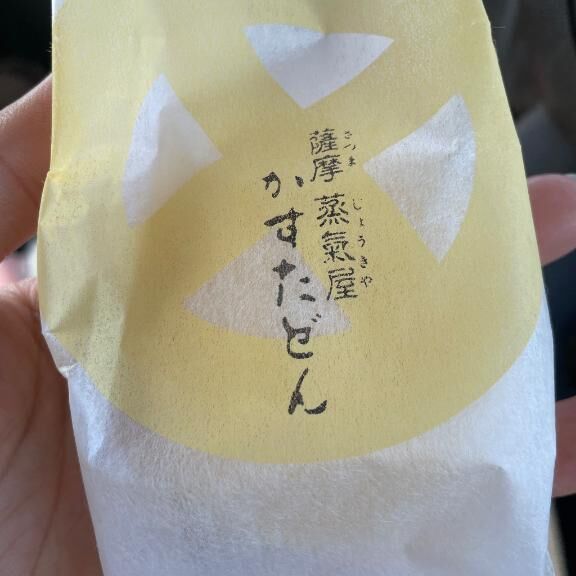 薩摩蒸氣屋
さつまじょうきや
かすたどん